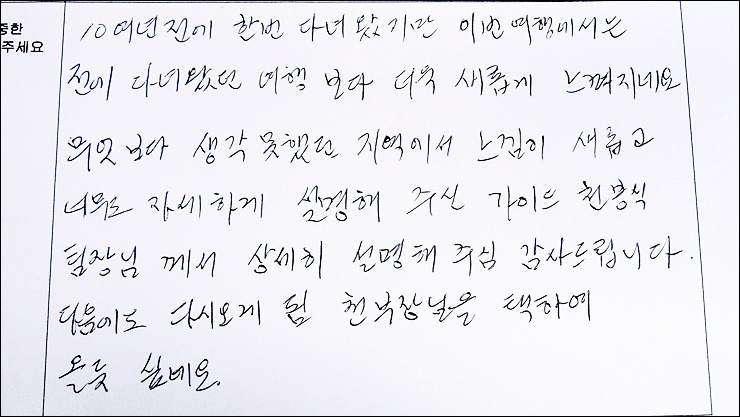 중한
주세요
10여년전에 한번 다녀 왔지만 이번여행에서는
전에 다녀왔던 여행 보다 더욱 새롭게 느껴지네요
무엇보다 생각못했던 지역에서 느낌이 새롭고
너무도 자세하게 설명해 주신 가이드 천봉식
팀장님 께서 상세히 설명해 주심 감사드립니다.
다음에도 다시오게 됨 천부장님을 택하여
올듯 싶네요.